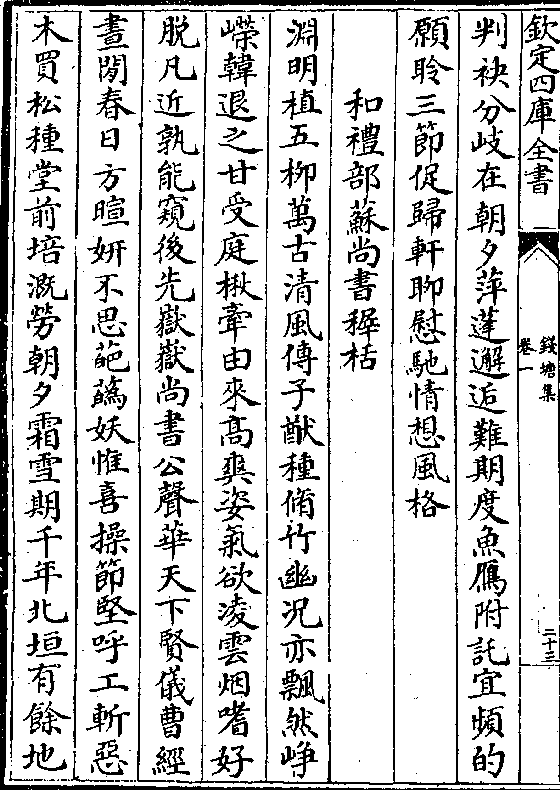 欽定四庫全書
錢塘集
卷一
二十三
判袂分岐在朝夕萍蓬邂逅難期度魚鴈附託宜頻的
願聆三節促歸軒聊慰馳情想風格
和禮部蘇尚書穉枯
淵明植五柳萬古清風傳子猷種脩竹幽況亦飄然崢
嶸韓退之甘受庭楸牽由來髙爽姿氣欲凌雲烟嗜好
脫凡近孰能窺後先嶽嶽尚書公聲華天下賢儀曹經
晝閒春日方暄妍不思葩蘤妖惟喜操節堅呼工斬惡
木買松種堂前培溉勞朝夕霜雪期千年北垣有餘地